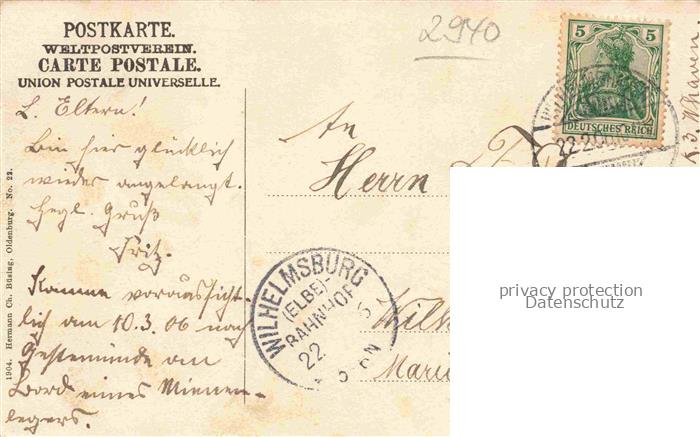 POSTKARTE.
WELTPOSTVEREIN.
CARTE POSTALE.
UNION POSTALE UNIVERSELLE.
2940
L. Eltern!
Bin hier glücklich
wieder angelangt.
Herzl. Gruß
Fritz.
Komme voraussicht-
lich am 10.3.06 nach
Gestemünde an
Bord eines Minen-
legers.
1904. Hermann Ch. Büsing, Oldenburg. No. 22.
An
Herrn
5 5
DEUTSCHES REICH
22.2.
WILHELMSBURG
(ELBE)-
BAHNHOF
22
Wilh
Mari
privacy protection
Datenschutz